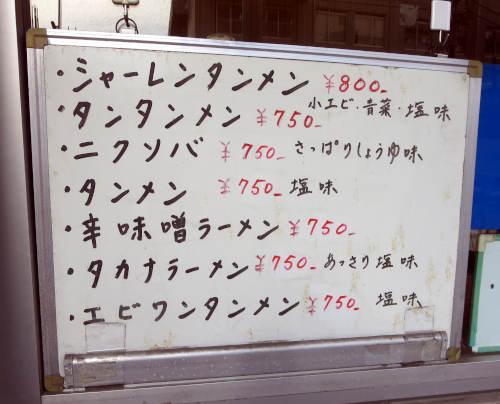 ・シャーレンタンメン ¥800-
小エビ・青菜・塩味
・タンタンメン ¥750-
・ニクソバ ¥750- さっぱりしょうゆ味
・タンメン ¥750- 塩味
・辛味噌ラーメン ¥750-
・タカナラーメン ¥750- あっさり塩味
・エビワンタンメン ¥750- 塩味